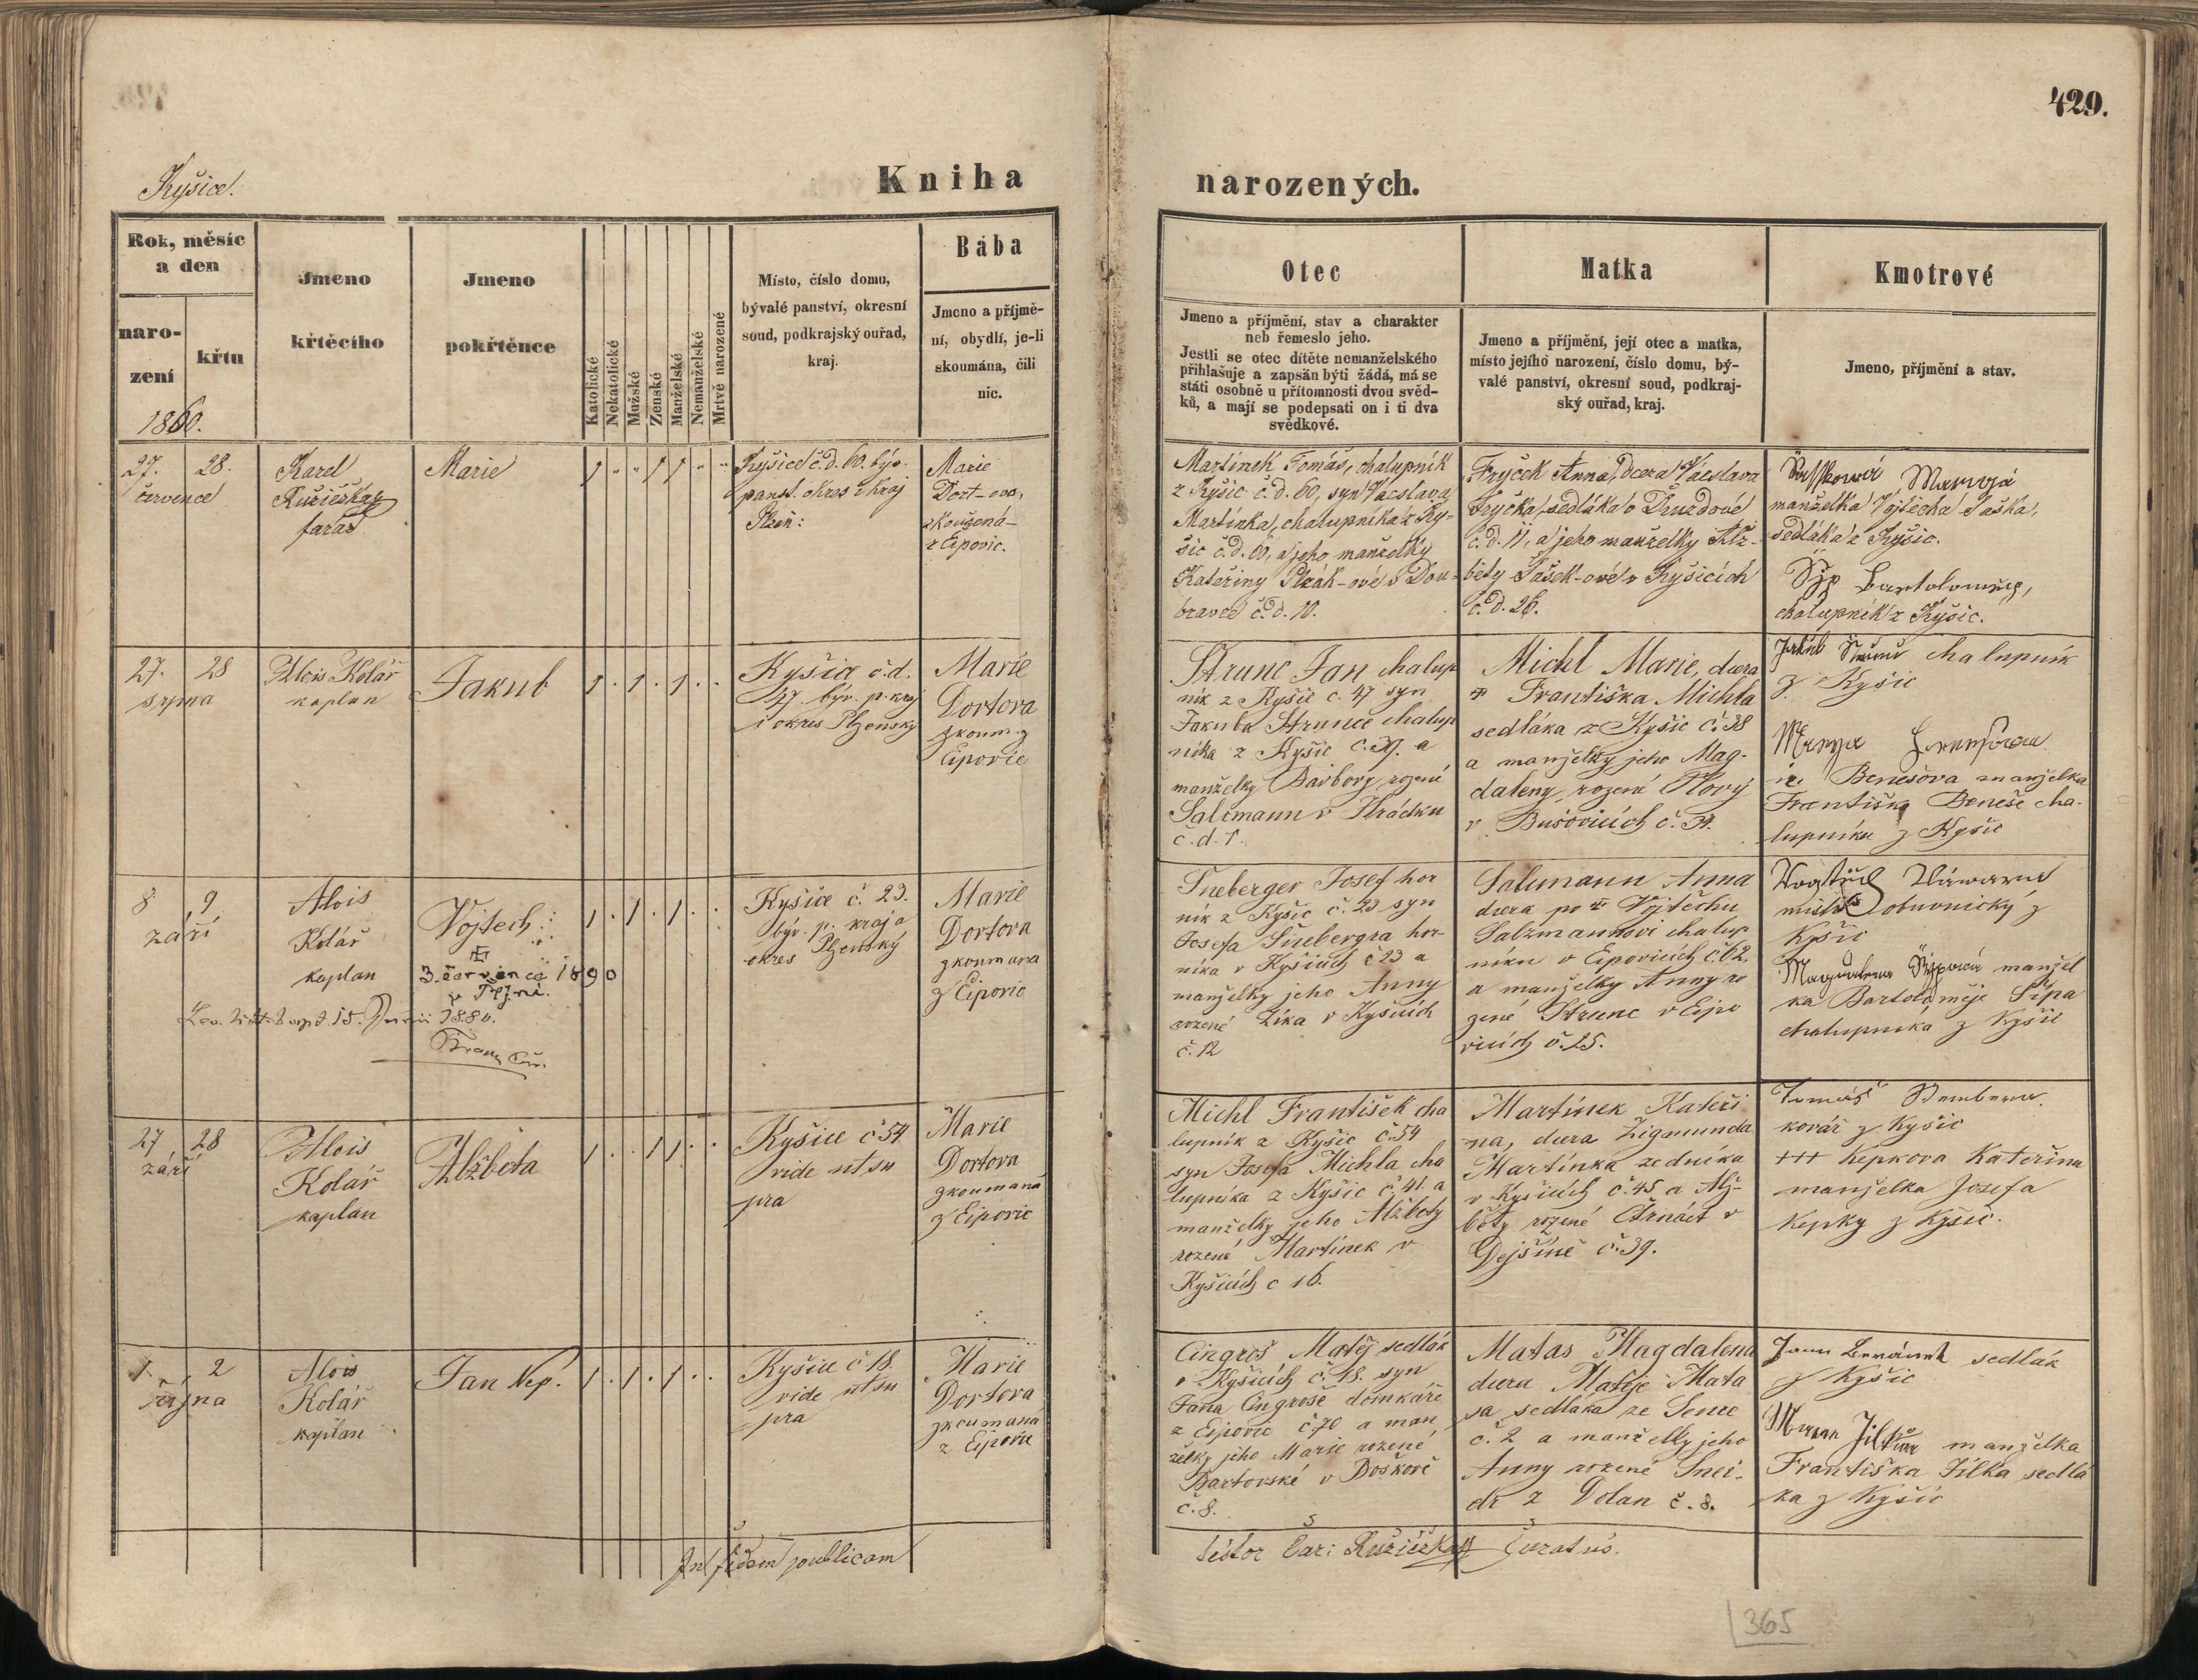 429.
Kyšice.
Kniha narozených.
Rok, měsíc
a den
naro-
zení
křtu
1860.
Jmeno
křtěcího
Jmeno
pokřtěnce
Katolické
Nekatolické
Mužské
Ženské
Manželské
Nemanželské
Mrtvě narozené
Místo, číslo domu,
bývalé panství, okresní
soud, podkrajský ouřad,
kraj.
Bába
Jmeno a příjmě-
ní, obydlí, je-li
skoumána, čili
nic.
Otec
Jmeno a příjmění, stav a charakter
neb řemeslo jeho.
Jestli se otec dítěte nemanželského
přihlašuje a zapsán býti žádá, má se
státi osobně u přítomnosti dvou svěd-
ků, a mají se podepsati on i ti dva
svědkové.
Matka
Jmeno a příjmění, její otec a matka,
místo jejího narození, číslo domu, bý-
valé panství, okresní soud, podkraj-
ský ouřad, kraj.
Kmotrové
Jmeno, příjmění a stav.
27. 28.
července
Karel
Růžička
farář
Marie
1 " " 1 1 " "
Kyšice č.d. 60. býv.
panst. okres i kraj
Plzeň:
Marie
Dort-ova,
zkoušená
z Eipovic.
Martínek Tomáš, chalupník
z Kyšic č.d. 60, syn Václava
Martínka, chalupníka z Ky-
šic č.d. 60, a jeho manželky
Kateřiny Plzák-ové z Dou-
bravce č.d. 10.
Fryček Anna, dcera Václava
Fryčka, sedláka v Druzdové
č.d. 11, a jeho manželky Alž-
běty Sašek-ové v Kyšicích
č.d. 26.
manželka Vojtěcha Saška,
sedláka z Kyšic.
Šyp Bartoloměj,
chalupník z Kyšic.
27. 28
srpna
Alois Kolář
kaplan
Jakub
1 . 1 . 1 . .
Kyšice č.d.
47 býv. p. kraj
i okres Plzenský
Marie
Dortova
zkoum. z
Eipovic
Strunc Jan chalup
ník z Kyšic č. 47 syn
Jakuba Strunce chalup
níka z Kyšic č. 39. a
manželky Barbory rozené
Salzmann v Hrádku
č.d. 1.
Michl Marie, dcera
Františka Michla
sedláka z Kyšic č. 38
a manželky jeho Mag-
daleny rozené Flový
v Bušovicích č. 34.
Jakub Strunc chalupník
z Kyšic
Benešova manželka
Františka Beneše cha-
lupníka z Kyšic
8 9
září
Alois
Kolář
kaplan
Vojtech
3. července 1890
v Plzni.
1880.
1 . 1 . 1 . .
Kyšice č. 23.
býv. p. kraj a
okres Plzenský
Marie
Dortova
zkoumana
z Eipovic
Šneberger Josef hor
ník z Kyšic č. 23 syn
Josefa Šnebergra hor-
níka v Kyšicích č 23 a
manželky jeho Anny
rozené Líka v Kyšicích
č. 12
Salzmann Anna
dcera po Vojtěchu
Salzmannovi chalup
níku v Eipovicích č. 62.
a manželky Anny ro
zené Strunc v Eipo
vicích č. 25.
mistr obuvnický z
Kyšic
Magdalena Šypová manžel
ka Bartoloměje Šípa
chalupníka z Kyšic
27 28
září
Alois
Kolář
kaplan
Alžběta
1 . . 1 1 . .
Kyšice č 54
vide ut su
pra
Marie
Dortova
zkoumaná
z Eipovic
Michl František cha
lupník z Kyšic č. 54
syn Josefa Michla cha
lupníka z Kyšic č 41. a
manželky jeho Alžběty
rozené Martínek v
Kyšicích č 16.
Martínek Kateři
na, dcera Zigmunda
Martínka zedníka
v Kyšicích č. 45 a Alž-
běty rozené Čtrnáct v
Dejšině č. 39.
Tomáš
kovář z Kyšic
+++ Kepkova Kateřina
manželka Josefa
Kepky z Kyšic.
1. 2
října
Alois
Kolář
kaplan
Jan Nep.
1 . 1 . 1 . .
Kyšice č 18.
vide ut su
pra
Marie
Dortova
zkoumaná
z Eipovic
Cingroš Matěj sedlák
v Kyšicích č. 18. syn
Jana Cingroše domkáře
z Eipovic č. 70 a man
želky jeho Marie rozené
Bartovské v Doškově
č. 8.
Matas Magdalena
dcera Matěje Mata
sa sedláka ze Sence
č. 2 a manželky jeho
Anny rozené Šnei-
dr z Dolan č. 8.
Jann Beránek sedlák
z Kyšic
manželka
Františka Jílka sedlá
ka z Kyšic
In fidem publicam
testor Car: Růžička Curatus.
365